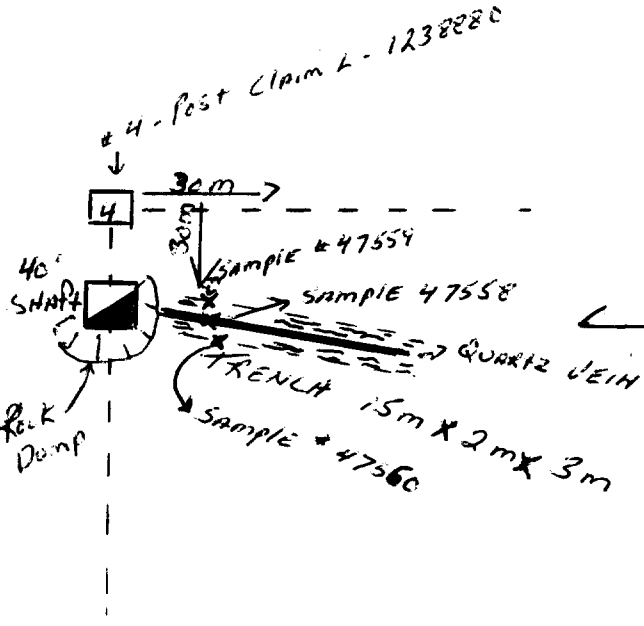 # 4 - Post Claim L - 1238880
30m
4
30m
40'
SHAFT
SAMPLE # 47559
SAMPLE 47558
QUARTZ VEIN
TRENCH 15m X 2m X 3m
SAMPLE # 47560
Rock
Dump